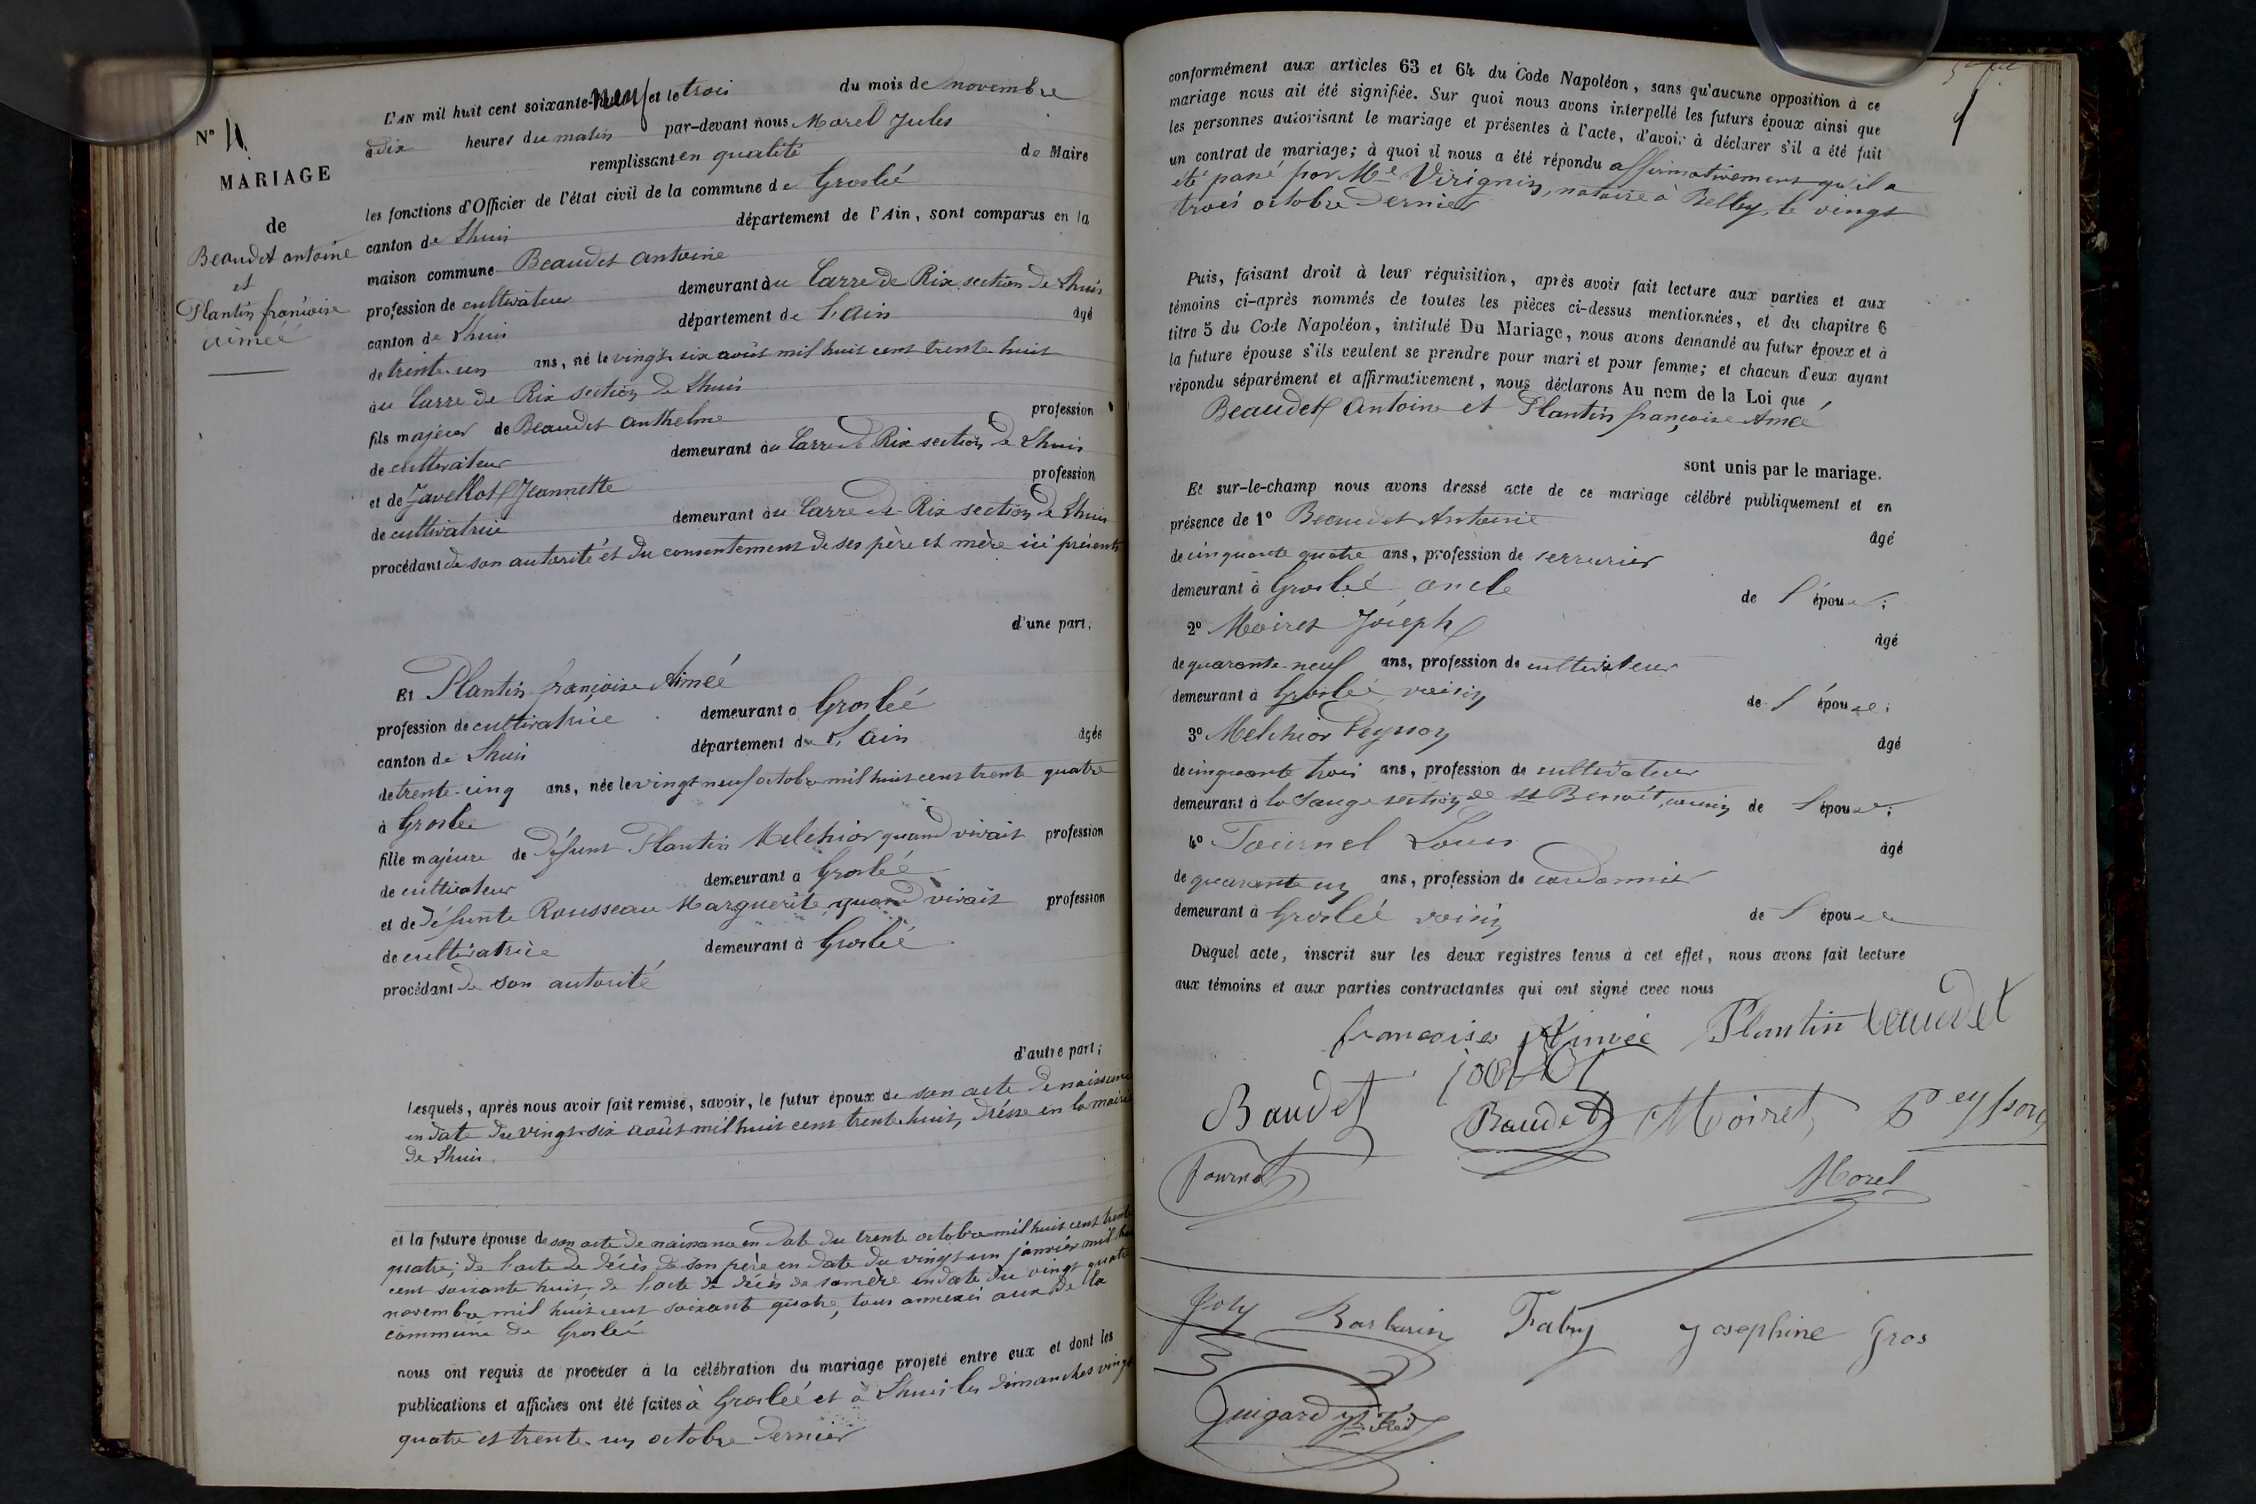 L'AN mil huit cent soixante-neuf et le trois du mois de novembre
à dix heures du matin par-devant nous Morel Jules
remplissant en qualité de Maire
les fonctions d'Officier de l'état civil de la commune de Groslée
canton de Lhuis département de l'Ain, sont comparus en la
maison commune Beaudet Antoine
profession de cultivateur demeurant au Carre de Rix section de Lhuis
canton de Lhuis département de L'Ain âgé
de trente-un ans, né le vingt-six août mil huit cent trente-huit
au Carre de Rix section de Lhuis
fils majeur de Beaudet Anthelme profession
de cultivateur demeurant au Carre de Rix section de Lhuis
et de Javellot Jeannette profession
de cultivatrice demeurant au Carre de Rix section de Lhuis
procédant de son autorité et du consentement de ses père et mère ici présents
d'une part;
N° 11
MARIAGE
de
Beaudet antoine
et
Plantin françoise
aimée
Et Plantin françoise Aimée
profession de cultivatrice demeurant à Groslée
canton de Lhuis département de L'Ain âgée
de trente-cinq ans, née le vingt neuf octobre mil huit cent trente quatre
à Groslée
fille majeure de défunt Plantin Melchior quand vivait profession
de cultivateur demeurant à Groslée
et de défunte Rousseau Marguerite quand vivait profession
de cultivatrice demeurant à Groslée
procédant de son autorité
d'autre part;
Lesquels, après nous avoir fait remise, savoir, le futur époux de son acte de naissance
en date du vingt-six août mil huit cent trente huit, dressé en la mairie
de Lhuis
et la future épouse de son acte de naissance en date du trente octobre mil huit cent trente
quatre; de l'acte de décès de son père en date du vingt un janvier mil huit
cent soixante huit, de l'acte de décès de sa mère en date du vingt quatre
novembre mil huit cent soixante quatre, tous annexés aux de la
commune de Groslée
nous ont requis de procéder à la célébration du mariage projeté entre eux et dont les
publications et affiches ont été faites à Groslée et à Lhuis les dimanches vingt
quatre et trente-un octobre dernier
conformément aux articles 63 et 64 du Code Napoléon, sans qu'aucune opposition à ce
mariage nous ait été signifiée. Sur quoi nous avons interpellé les futurs époux ainsi que
les personnes autorisant le mariage et présentes à l'acte, d'avoir à déclarer s'il a été fait
un contrat de mariage; à quoi il nous a été répondu affirmativement qu'il a
été passé par Me Virignin, notaire à Belley, le vingt
trois octobre dernier
Puis, faisant droit à leur réquisition, après avoir fait lecture aux parties et aux
témoins ci-après nommés de toutes les pièces ci-dessus mentionnées, et du chapitre 6
titre 5 du Code Napoléon, intitulé Du Mariage, nous avons demandé au futur époux et à
la future épouse s'ils veulent se prendre pour mari et pour femme; et chacun d'eux ayant
répondu séparément et affirmativement, nous déclarons Au nom de la Loi que
Beaudet Antoine et Plantin françoise Amée
sont unis par le mariage.
Et sur-le-champ nous avons dressé acte de ce mariage célébré publiquement et en
présence de 1° Beaudet Antoine âgé
de cinquante quatre ans, profession de serrurier
demeurant à Groslée oncle de l'épouse;
2° Moiret Joseph âgé
de quarante-neuf ans, profession de cultivateur
demeurant à Groslée voisin de l'épouse;
3° Melchior Peysson âgé
de cinquante trois ans, profession de cultivateur
demeurant à la Sauge section de St Benoît, cousin de l'épouse;
4° Tournel Louis âgé
de quarante un ans, profession de cordonnier
demeurant à Groslée voisin de l'épouse
Duquel acte, inscrit sur les deux registres tenus à cet effet, nous avons fait lecture
aux témoins et aux parties contractantes qui ont signé avec nous
françoise Aimée Plantin beaudet
Baudet Baudet Moiret Peysson
Tournel Morel
Joly Barbarin Fabry Josephine Gros
Guigard